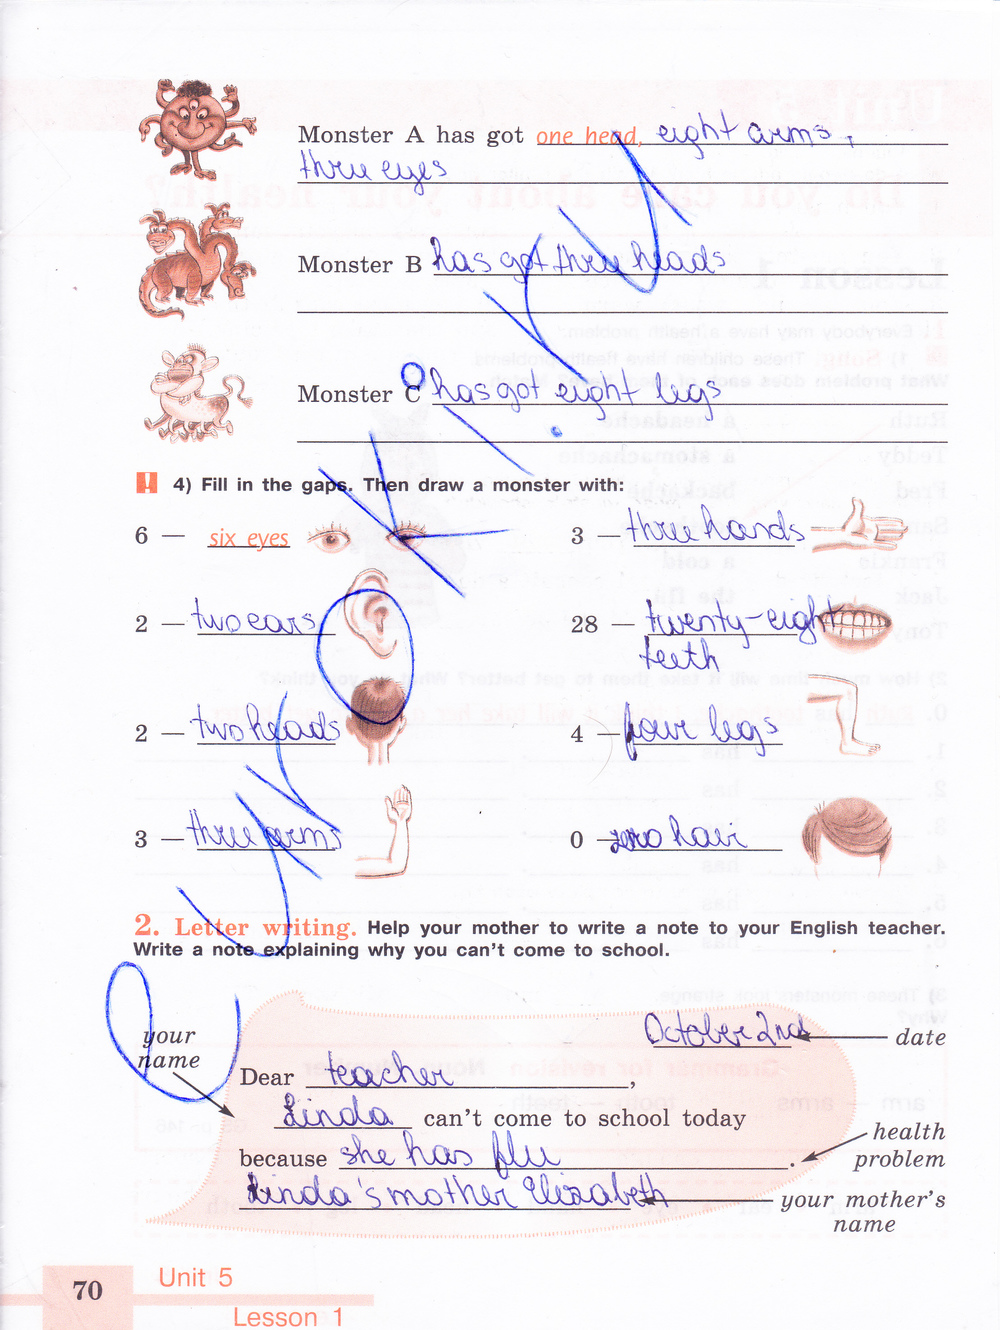 Monster A has got one head, eight arms,
three eyes
Monster B has got three heads
Monster C has got eight legs
4) Fill in the gaps. Then draw a monster with:
6 — six eyes
3 — three hands
2 — two ears
28 — twenty-eight
teeth
2 — two heads
4 — four legs
3 — three arms
0 — zero hair
2. Letter writing. Help your mother to write a note to your English teacher.
Write a note explaining why you can't come to school.
October 2nd
date
your
name
Dear teacher,
Linda can't come to school today
health
problem
because she has flu.
Linda's mother Elizabeth
your mother's
name
70
Unit 5
Lesson 1